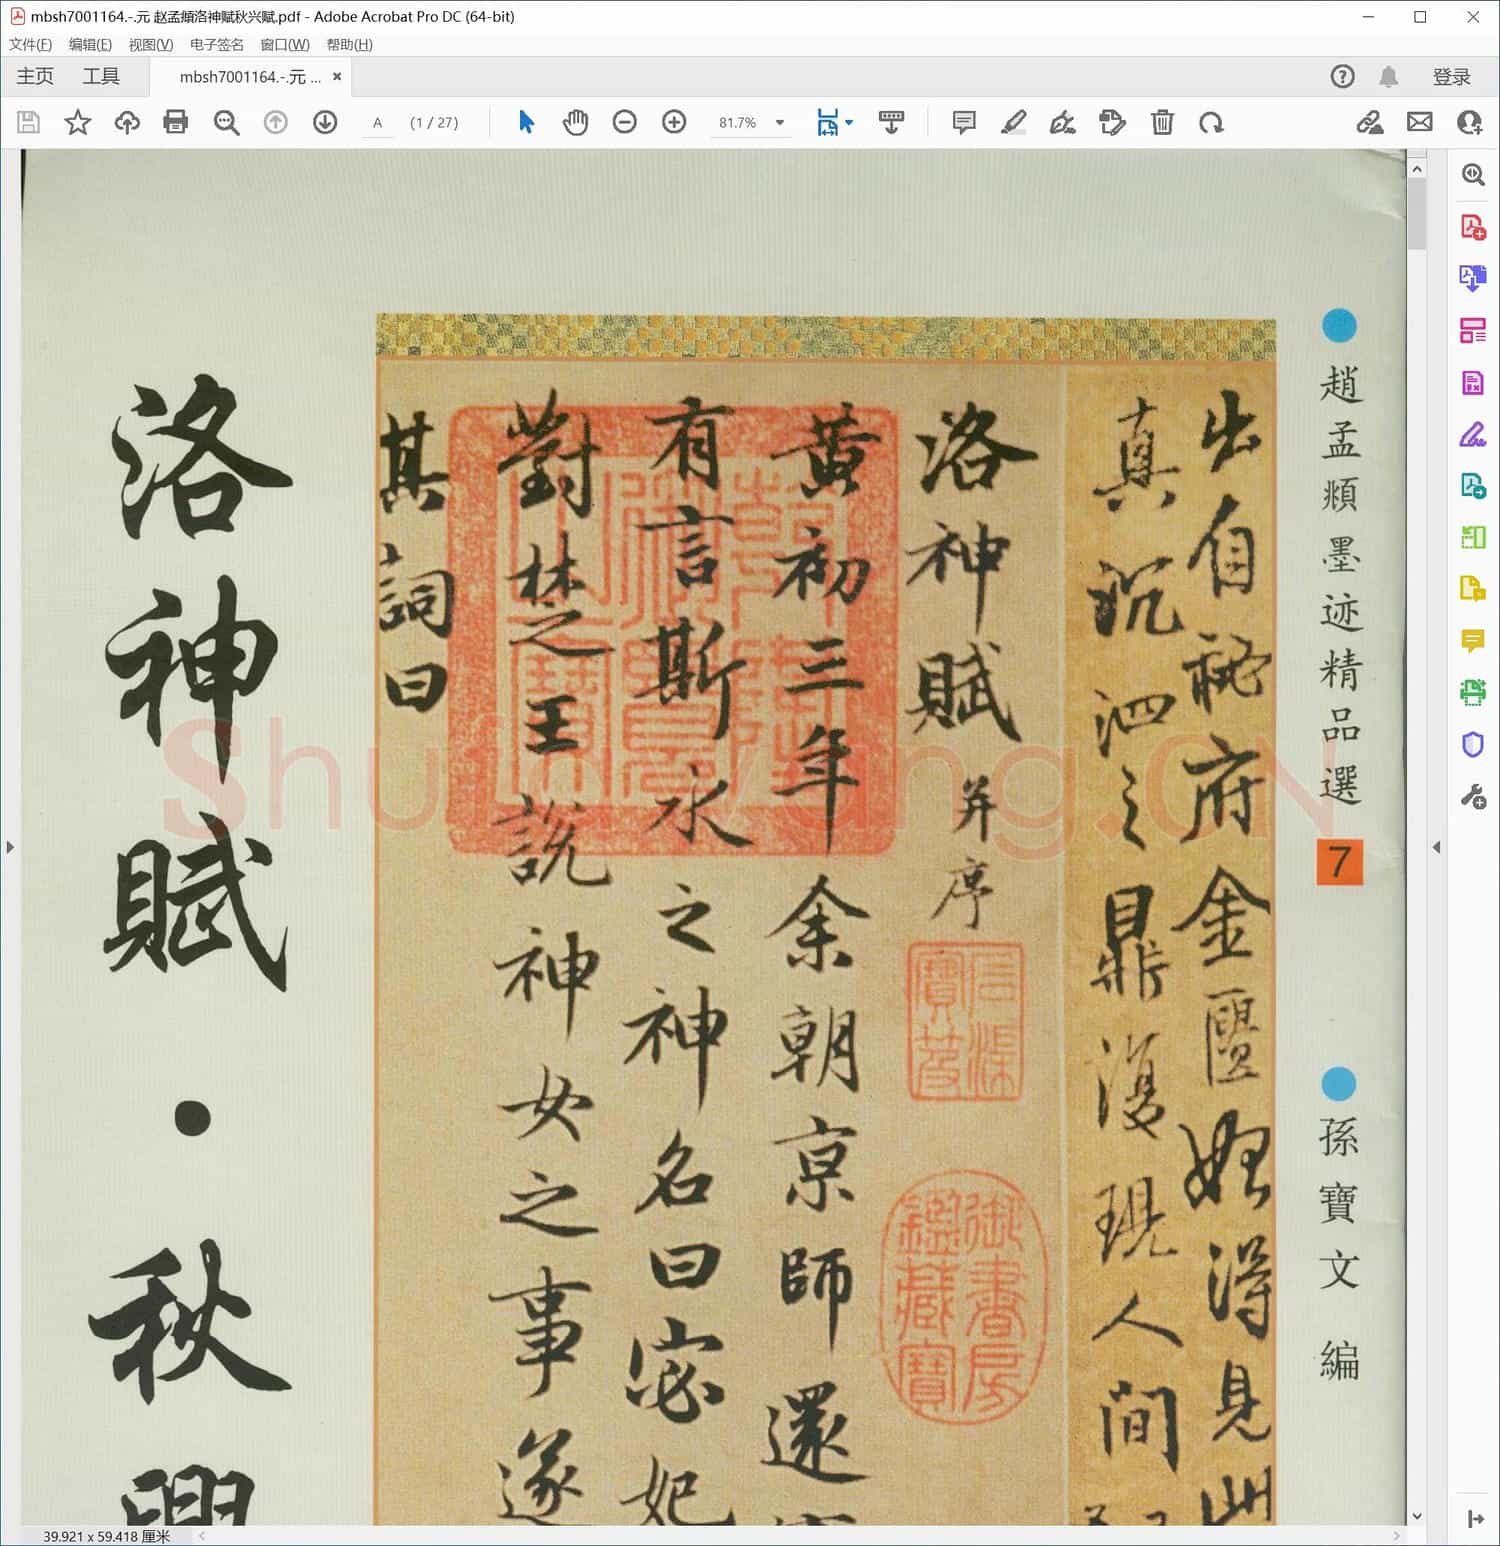 mbsh7001164.-.元 赵孟頫洛神赋秋兴赋.pdf - Adobe Acrobat Pro DC (64-bit)
文件(F) 编辑(E) 视图(V) 电子签名 窗口(W) 帮助(H)
主页 工具 mbsh7001164.-.元 ... × 登录
A (1 / 27) 81.7%
趙孟頫墨迹精品選
7
孫寶文 編
出自秘府金匱始得見此
真沉泗之鼎復現人間
洛神賦 并序
黄初三年余朝京師還
有言斯水之神名曰宓妃
對楚之王說神女之事遂
其詞曰
御書房鑑藏寶
洛神賦·秋興
ShufaWang.CN
39.921 x 59.418 厘米